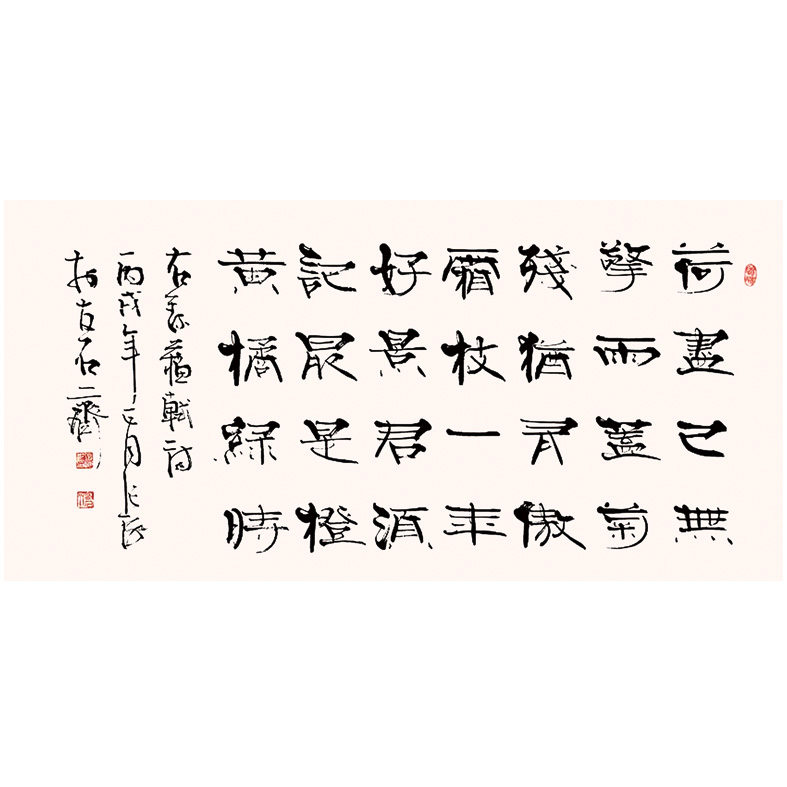 荷盡已無
擎雨蓋菊
殘猶有傲
霜枝一年
好景君須
記最是橙
黃橘綠時
右錄蘇軾詩
丙戌年
古石齋